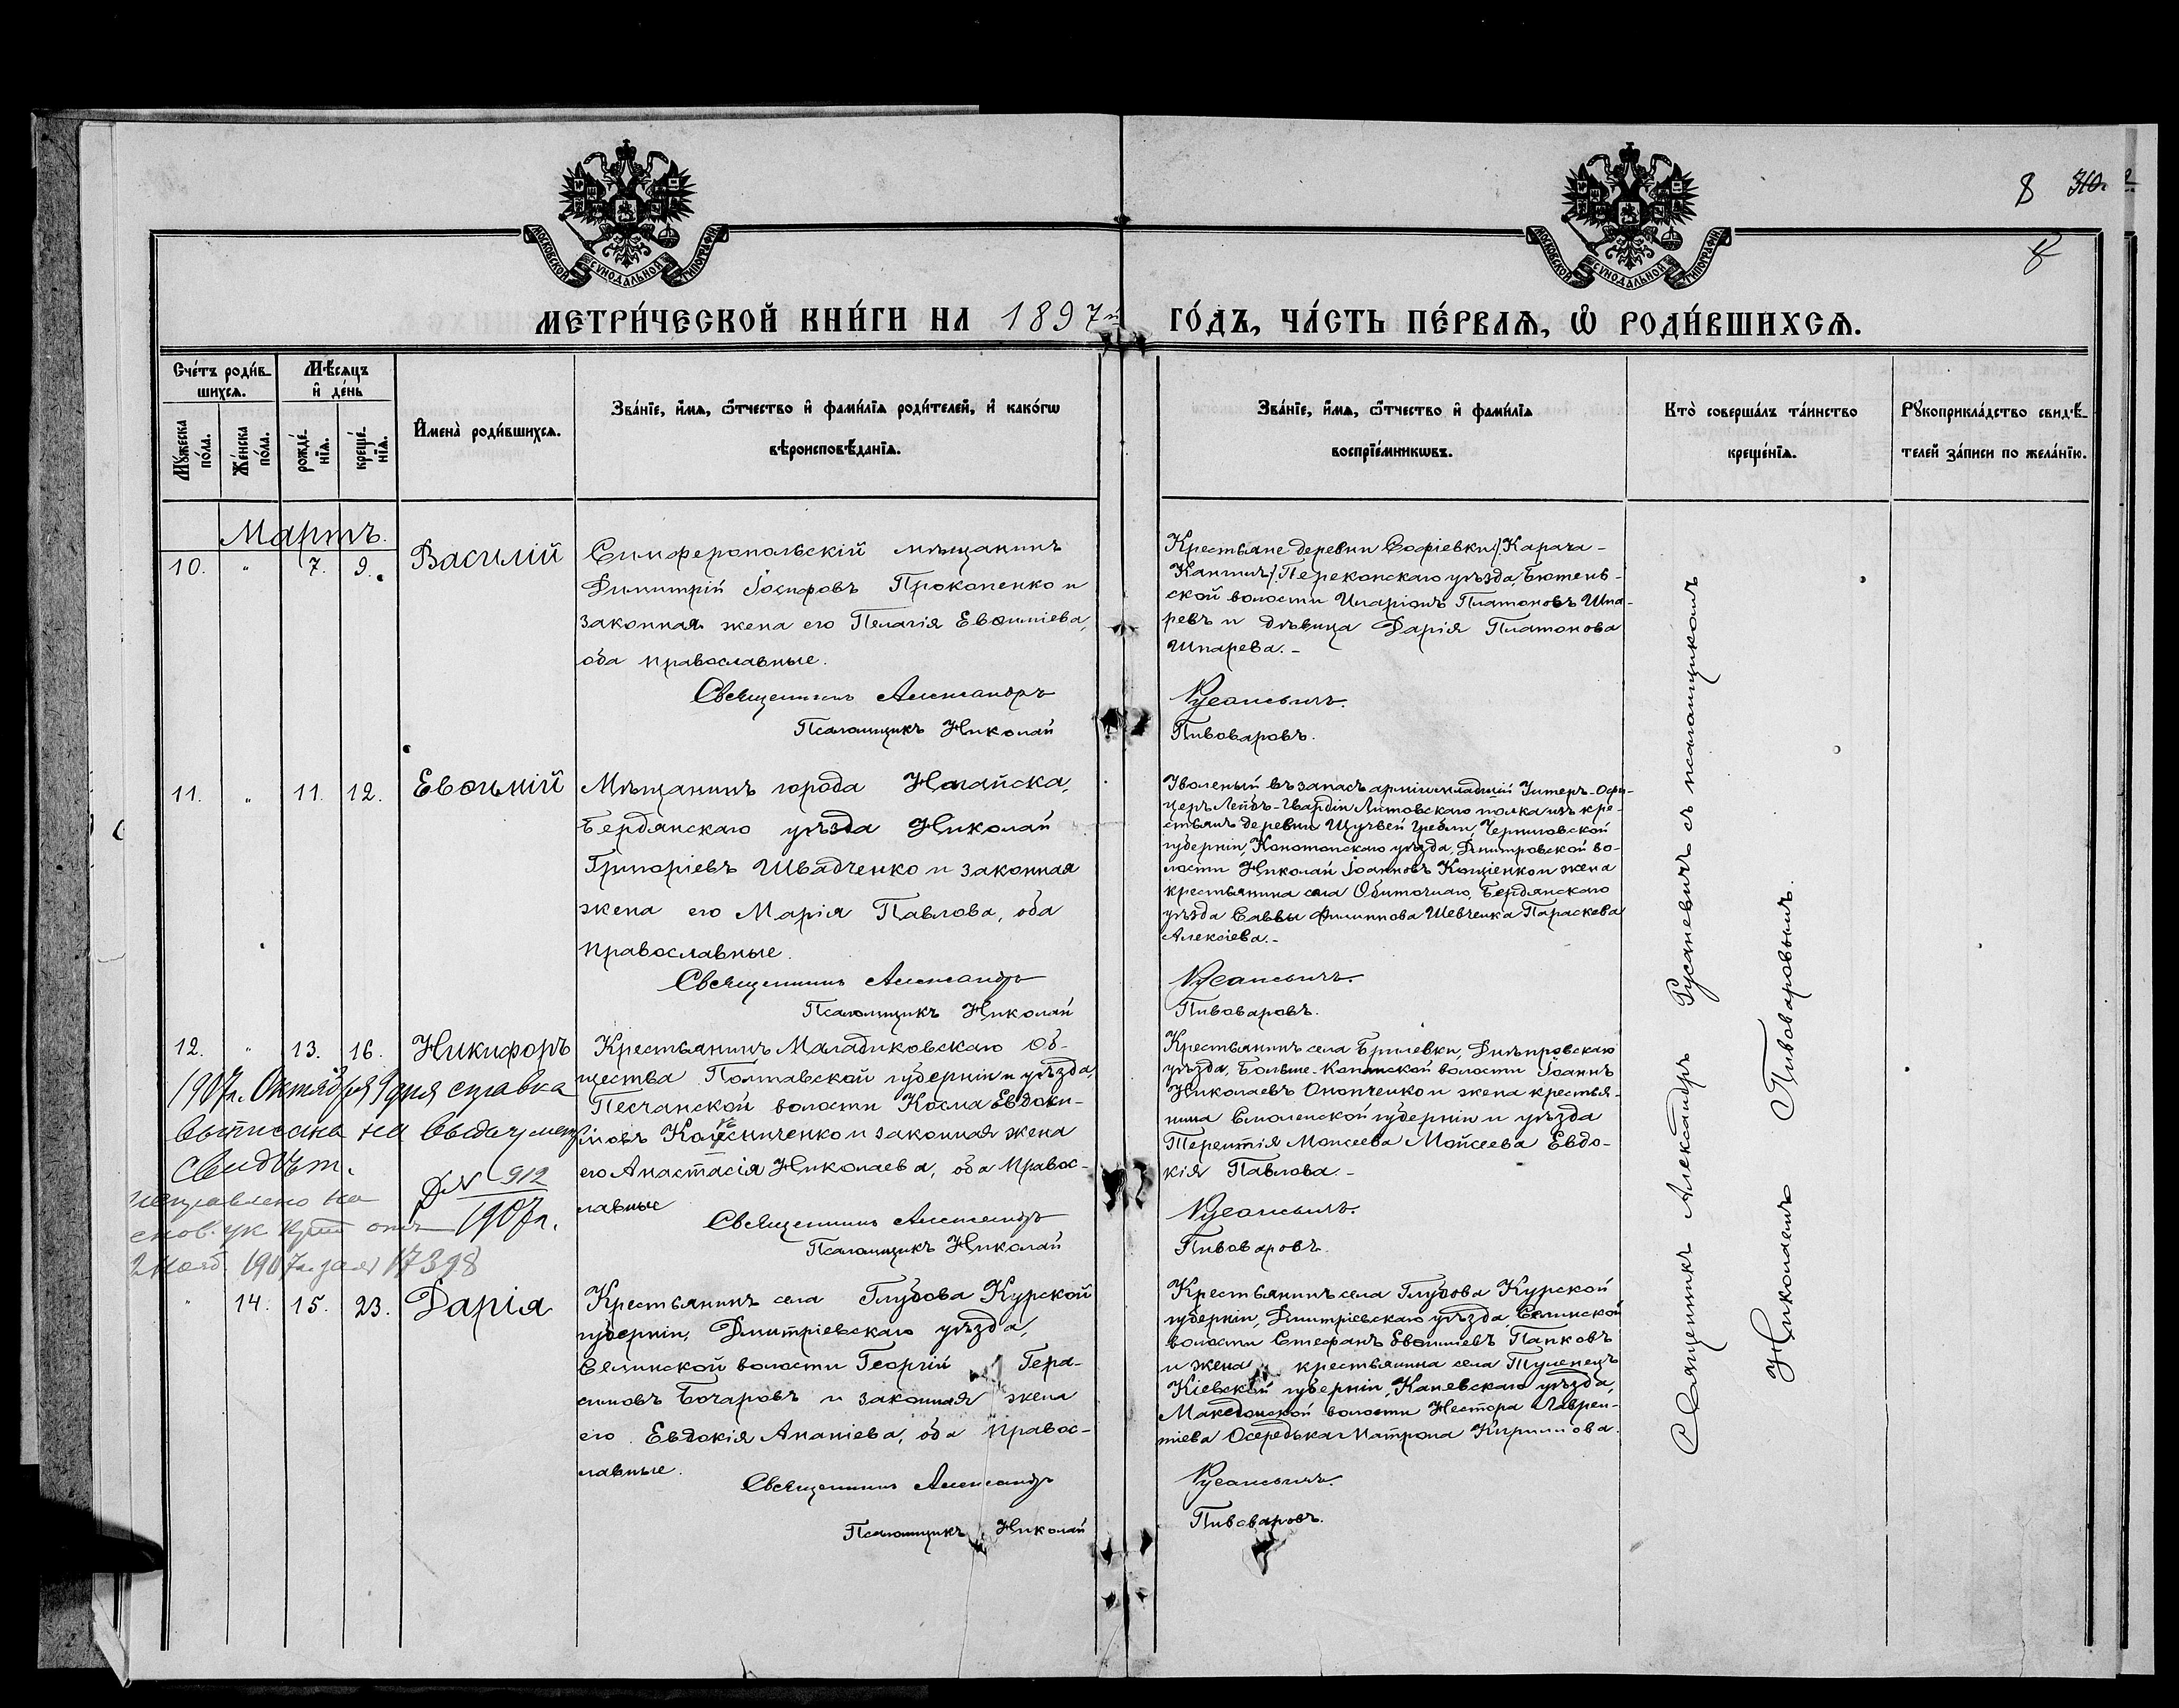 8
8
МОСКОВСКОЙ СѴНОДАЛЬНОЙ ТИПОГРАФІИ
МОСКОВСКОЙ СѴНОДАЛЬНОЙ ТИПОГРАФІИ
МЕТРИ́ЧЕСКОЙ КНИ́ГИ НА 1897й ГО́ДЪ, ЧА́СТЬ ПЕ́РВАѦ, Ѡ҆ РОДИ́ВШИХСѦ.
Сче́тъ роди́в-
шихсѧ.
Мѣ́сяцъ
и҆ де́нь
Мꙋ́жеска по́ла.
Же́нска по́ла.
рожде́-нїѧ.
креще́-нїѧ.
И҆мена̀ роди́вшихсѧ.
Зва́нїе, и҆́мѧ, ѻ҆́тчество и҆ фами́лїѧ роди́телей, и҆ како́гѡ
вѣроисповѣ́данїѧ.
Зва́нїе, и҆́мѧ, ѻ҆́тчество и҆ фами́лїѧ
воспрїе́мникѡвъ.
Кто̀ соверша́лъ та́инство
креще́нїѧ.
Рꙋкоприкла́дство свидѣ́-
телей за́писи по жела́нїю.
Мартъ.
10. " 7. 9. Василій
Симферопольскій мѣщанинъ
Димитрій Іосифовъ Прокопенко и
законная жена его Пелагія Евѳиміева,
оба православные.
Священникъ Александръ
Псаломщикъ Николай
Крестьяне деревни Софіевки /Карача-
Кангилъ/ Перекопскаго уѣзда, Бютень-
ской волости Иларіонъ Платоновъ Шпа-
ревъ и дѣвица Дарія Платонова
Шпарева.-
Русаневичъ.
Пивоваровъ.
11. " 11. 12. Евѳимій
Мѣщанинъ города Ногайска,
Бердянскаго уѣзда Николай
Григоріевъ Швадченко и законная
жена его Марія Павлова, оба
православные.
Священникъ Александръ
Псаломщикъ Николай
Уволеный въ запасъ арміи младшій Унтеръ-Офи-
церъ Лейбъ-Гвардіи Литовскаго полка изъ кре-
стьянъ деревни Щучьей Гребли, Черниговской
губерніи, Конотопскаго уѣзда, Дмитровской во-
лости Николай Іоанновъ и жена
крестьянина села Обиточнаго, Бердянскаго
уѣзда Саввы Филиппова Шевченка Параскева
Алексіева.-
Русаневичъ.
Пивоваровъ.
12. " 13. 16. Никифоръ
1907г. Октября 9 дня справка
выписана на выдачу метр
свидѣт.
Д № 912
1907г.
исправлено на
основ. ук от
2 1907г. за № 17398
Крестьянинъ Маладиковскаго об-
щества Полтавской губерніи и уѣзда,
Песчанской волости Косма Евдоки-
мовъ Колесниченко и законная жена
его Анастасія Николаева, оба правос-
лавные
Священникъ Александръ
Псаломщикъ Николай
Крестьянинъ села Брилевки, Днѣпровскаго
уѣзда, Больше-Копанской волости Іоаннъ
Николаевъ Онопченко и жена крестья-
нина Смоленской губерніи и уѣзда
Терентія Моисеева Мойсеева Евдо-
кія Павлова.-
Русаневичъ.
Пивоваровъ.
" 14. 15. 23. Дарія
Крестьянинъ села Глубова Курской
губерніи, Дмитріевскаго уѣзда,
Селинской волости Георгій Гера-
симовъ Бочаровъ и законная жена
его Евдокія Ананіева, оба правос-
лавные.
Священникъ Александръ
Псаломщикъ Николай
Крестьянинъ села Глубова Курской
губерніи, Дмитріевскаго уѣзда, Селинской
волости Стефанъ Евѳиміевъ Папковъ
и жена крестьянина села Тулинецъ
Кіевской губерніи, Каневскаго уѣзда,
Македонской волости Нестора Лаврен-
тіева Осередька Матрона Кириллова.
Русаневичъ.
Пивоваровъ.
Священникъ Александръ Русаневичъ съ псаломщикомъ
Николаемъ Пивоваровымъ.